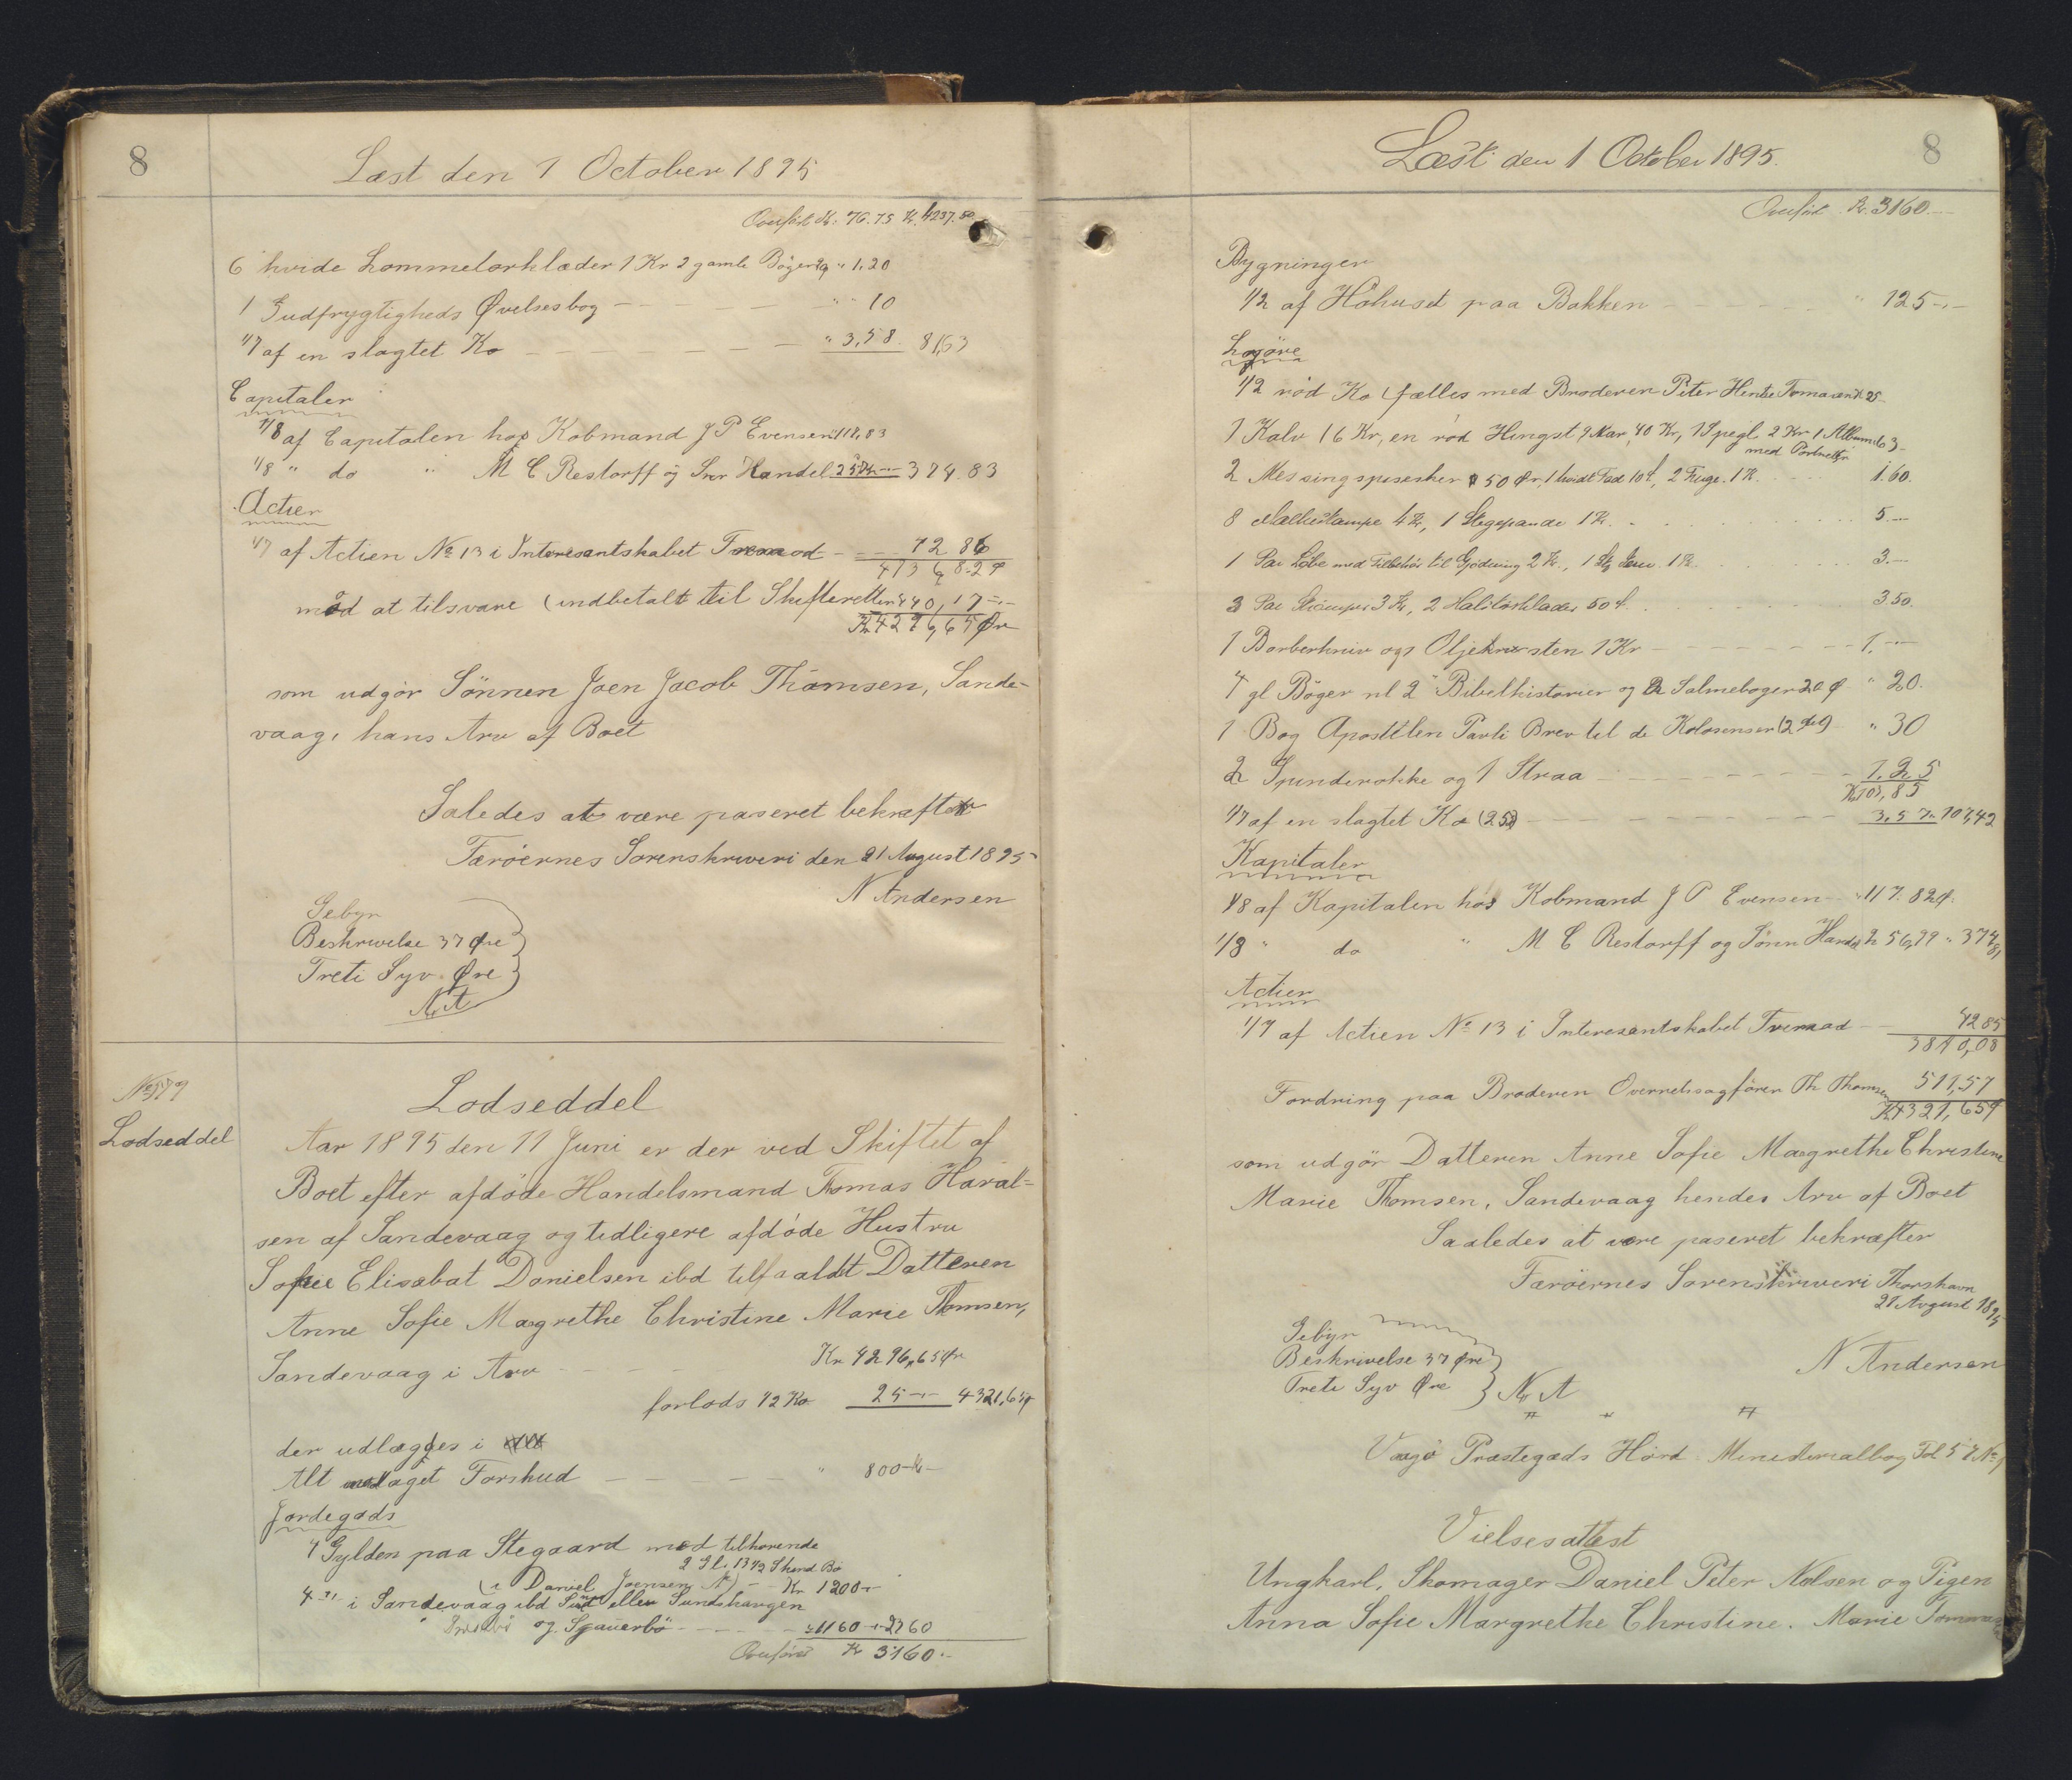 8
Læst den 1 October 1895
Overført Kr. 76.75 Kr. 4237.50
6 hvide Lommetørklæder 1 Kr 2 gamle Bøger " 1,20
1 Gudfrygtigheds Øvelsesbog " 10
1/7 af en slagtet Ko " 3,58. 81,53
Capitaler
1/8 af Capitalen hos Kobmand J P Evensen 117,83
1/8 " do " M C Restorff og Snr Handel 257 374.83
Actier
1/7 af Actien No 13 i Interesentskabet Tvermod 42 86
mod at tilsvare (indbetalt til Skifteretten 440,17
Kr 4296,65 Øre
som udgør Sönnen Joen Jacob Thomsen, Sande-
vaag, hans Arv af Boet
Saledes at være paseret bekræfter
Færöernes Sorenskriveri den 21 August 1895
N Andersen
Gebyr
Beskrivelse 37 Øre
Treti Syv Øre
N. A
No 579
Lodseddel
Lodseddel
Aar 1895 den 11 Juni er der ved Skiftet af
Boet efter afdöde Handelsmand Tomas Haral=
sen af Sandevaag og tidligere afdöde Hustru
Sofie Elisabat Danielsen ibd tilfaaldt Datteren
Anne Sofie Magrethe Christine Marie Thomsen,
Sandevaag i Arv Kr 4296,65 Ør
forlods 1/2 Ko 25 4321,65
der udlægges i
Alt modtaget Forskud " 800
Jordegods
4 Gylden paa Stegaard med tilhørende
2 Gl. 13 1/2 Skind Bø
(i Daniel Joensen N) Kr 1200
4 " i Sandevaag ibd Sund eller Sundshaugen
og. Sgauerbö 1160 2360
Overføres Kr 3160.
Læst den 1 October 1895.
8
Overført Kr. 3160
Bygninger
1/2 af Höhuset paa Bakken " 125
Løsöre
1/2 rød Ko (fælles med Broderen Peter 25
1 Kalv 16 Kr, en rød Hingst 9 Aar, 40 Kr, 1 Spegl 2 Kr 1 Album 63
med Portretter
2 Messingspisesker 50 Ør, 1 hvidt Fad 10 , 2 1 K. 1.60.
8 4 Kr, 1 Stegepande 1 Kr. 5
1 Par med Tilbehör til Gjødning 2 Kr., 1 1 K. 3
3 Par Strömper 3 Kr, 2 Halstørklæder 50 3.50.
1 Barberkniv ogs Oljekrusten 1 Kr 1.
4 gl Bøger nl 2 Bibelhistorier og 2 Salmebøger 20 Ø " 20.
1 Bog Aposttlen Pavli Brev til de Kolosenser (2 " 30
2 Spinderokke og 1 Straa 1.25
Kr 103,85
1/7 af en slagtet Ko (25) 3,57 107,42
Kapitaler
1/8 af Kapitalen hos Kobmand J P Evensen 117.82
1/8 " do " M C Restorff og Sönn Handel 256,99 " 374,81
Actier
1/7 af Actien No 13 i Interesentskabet Tvermod 42 85
3810,08
Fordring paa Broderen Overretssagfører Th Thomsen 511,57
Kr 4321,65
som udgör Datteren Anne Sofie Magrethe Christine
Marie Thomsen, Sandevaag hendes Arv af Boet
Saaledes at være paseret bekræfter
Færöernes Sorenskriveri Thorshavn
21 August 1895
Gebyr
Beskrivelse 37 Øre
Treti Syv Øre
N. A
N Andersen
Vaagö Præstegæds Hörd. Ministerialbog Fol 57 No 1
Vielsesattest
Ungkarl, Skomager Daniel Peter Nolsen og Pigen
Anna Sofie Margrethe Christine. Marie